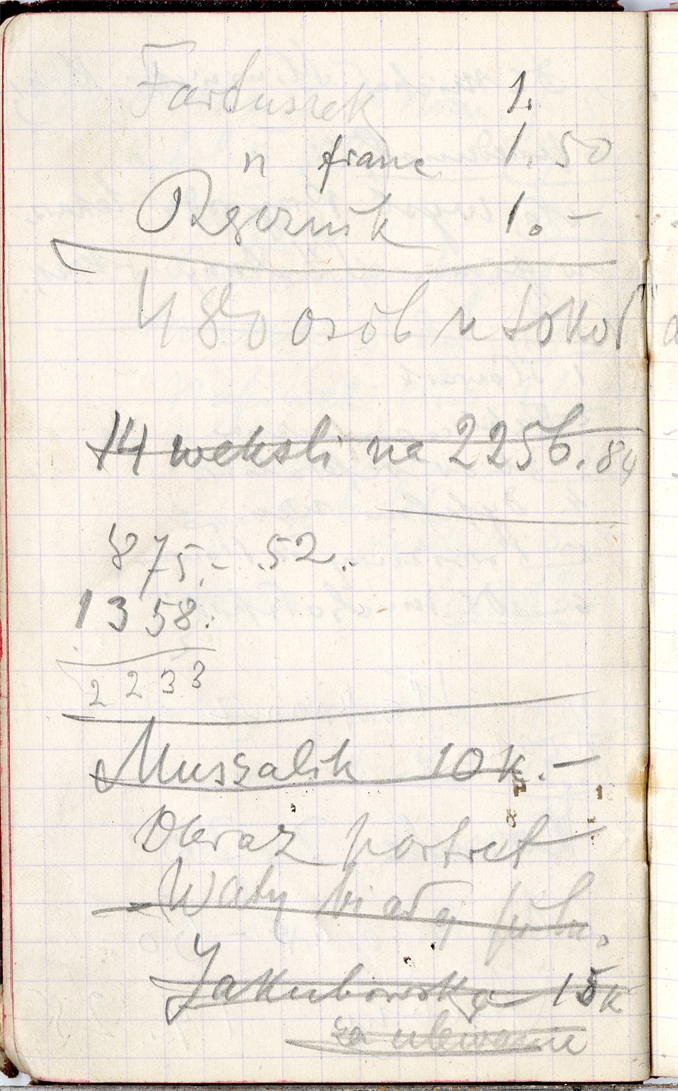 Fartuszek 1.
n franc 1.50
Rgornik 1.-
480 osób n sokoł
14 weksli na 2256.84
875.- 52.-
1358.
2233
Muszalik 10 k.-
Obraz portret
Waty białej
Jakubowska 15 k
za ulewanie